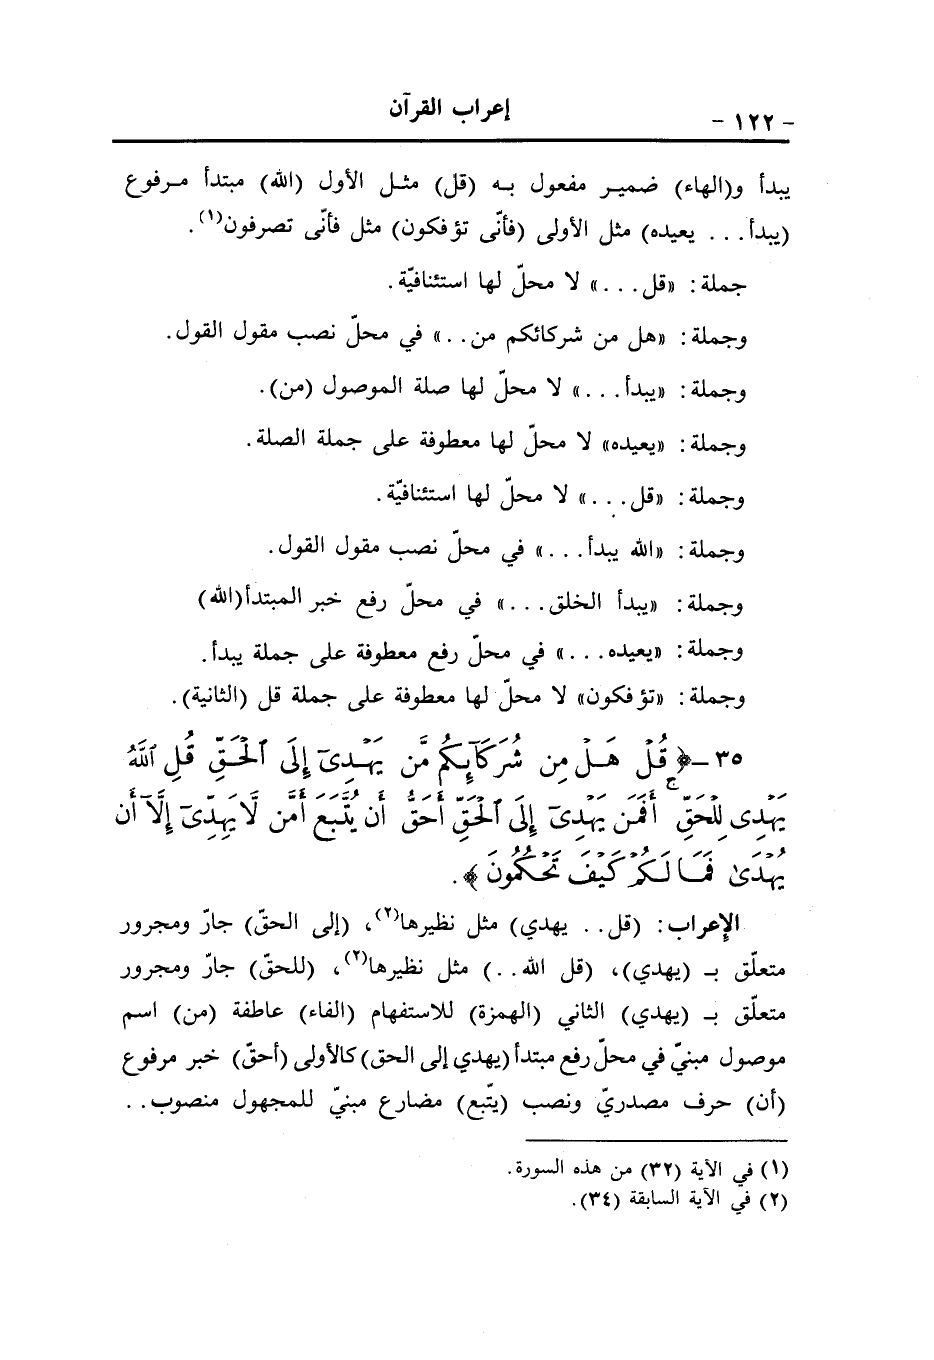 - ١٢٢ -
إعراب القرآن
يبدأ و(الهاء) ضمير مفعول به (قل) مثل الأول (الله) مبتدأ مرفوع
(يبدأ... يعيده) مثل الأولى (فأنّى تؤفكون) مثل فأنّى تصرفون(١).
جملة: «قل...» لا محلّ لها استئنافيّة.
وجملة: «هل من شركائكم من..» في محلّ نصب مقول القول.
وجملة: «يبدأ...» لا محلّ لها صلة الموصول (من).
وجملة: «يعيده» لا محلّ لها معطوفة على جملة الصلة.
وجملة: «قل...» لا محلّ لها استئنافيّة.
وجملة: «الله يبدأ...» في محلّ نصب مقول القول.
وجملة: «يبدأ الخلق...» في محلّ رفع خبر المبتدأ(الله)
وجملة: «يعيده...» في محلّ رفع معطوفة على جملة يبدأ.
وجملة: «تؤفكون» لا محلّ لها معطوفة على جملة قل (الثانية).
٣٥ -﴿ قُلْ هَلْ مِن شُرَكَآئِكُم مَّن يَهْدِىٓ إِلَى ٱلْحَقِّ قُلِ ٱللَّهُ
يَهْدِى لِلْحَقِّ ۗ أَفَمَن يَهْدِىٓ إِلَى ٱلْحَقِّ أَحَقُّ أَن يُتَّبَعَ أَمَّن لَّا يَهِدِّىٓ إِلَّآ أَن
يُهْدَىٰ فَمَا لَكُمْ كَيْفَ تَحْكُمُونَ ﴾.
الإعراب: (قل.. يهدي) مثل نظيرها(٢)، (إلى الحقّ) جارّ ومجرور
متعلّق بـ (يهدي)، (قل الله..) مثل نظيرها(٢)، (للحقّ) جارّ ومجرور
متعلّق بـ (يهدي) الثاني (الهمزة) للاستفهام (الفاء) عاطفة (من) اسم
موصول مبنيّ في محلّ رفع مبتدأ (يهدي إلى الحق) كالأولى (أحقّ) خبر مرفوع
(أن) حرف مصدريّ ونصب (يتّبع) مضارع مبنيّ للمجهول منصوب..
(١) في الآية (٣٢) من هذه السورة.
(٢) في الآية السابقة (٣٤).